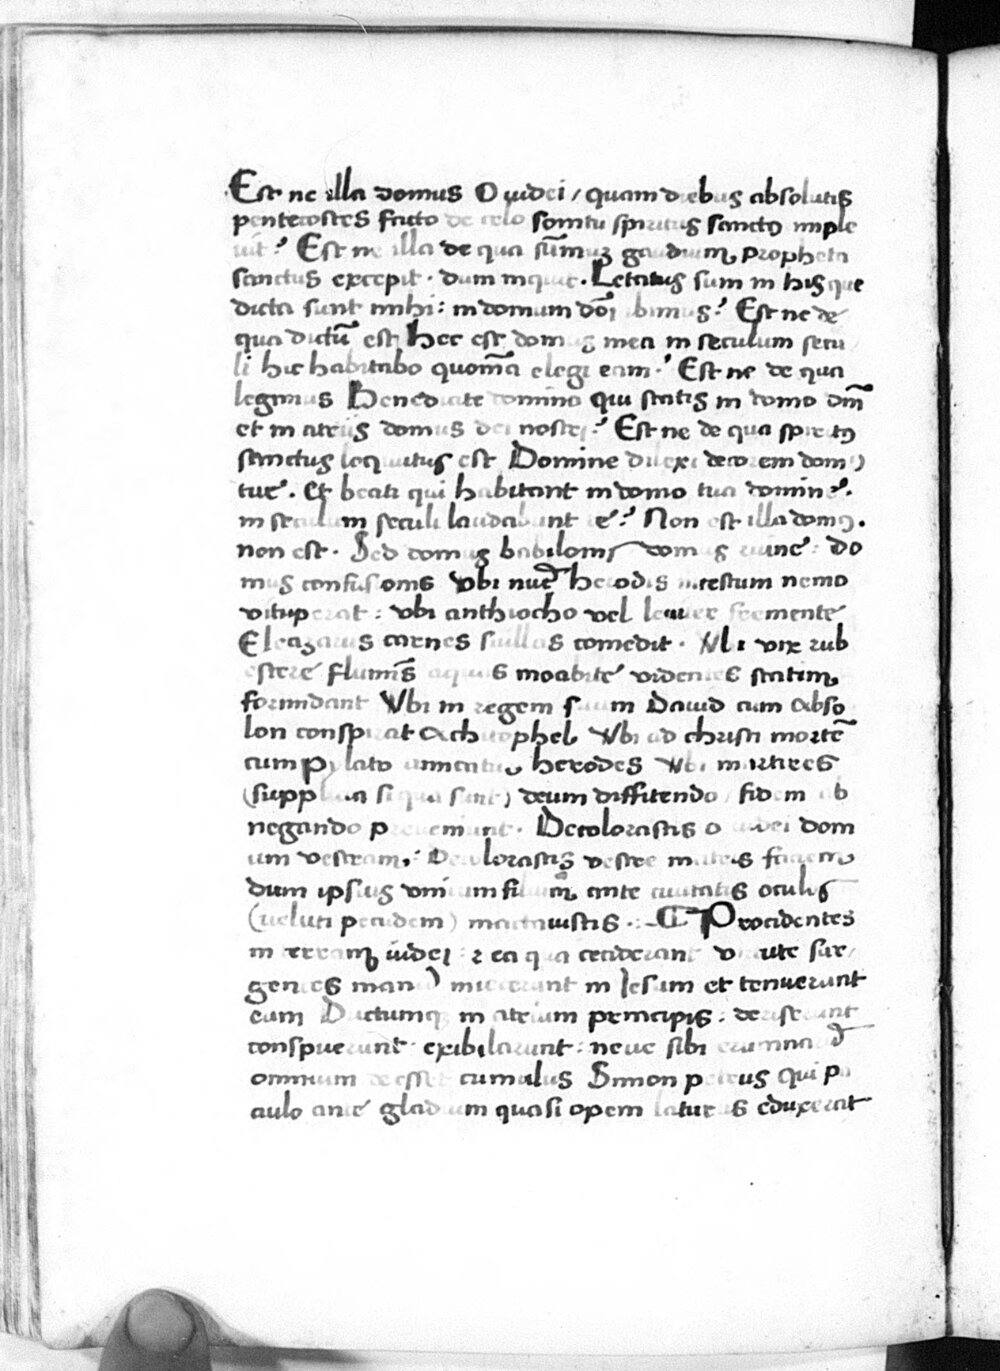 Est ne illa domus O iudei / quam diebus absolutis
pentecostes facto de celo sonitu spiritus sanctus imple
uit? Est ne illa de qua sūmuʒ gaudium propheta
sanctus excepit · dum inquit. Letatus sum in his que
dicta sunt mihi : in domum dōi ibimus? Est ne de
qua dictū est Hec est domus mea in seculum secu
li hic habitabo quoniā elegi eam? Est ne de qua
legimus Benedicite domino qui statis in domo dm̄
et in atriis domus dei nostri? Est ne de qua spiritus
sanctus locutus est Domine dilexi decorem domus
tue. Et beati qui habitant in domo tua domine.
in seculum seculi laudabunt te? Non est illa domus.
non est. Sed domus babilonis domus ruine : Do
mus confusionis Vbi nuper herodis incestum nemo
vituperat : vbi anthiocho vel leuiter fremente
Eleazarus carnes suillas comedit. Vbi vix rub
estere fluminis aquas moabite videntes statim
formidant Vbi in regem suum Dauid cum Abso
lon conspirat Achitophel Vbi ad christi mortē
cum pylato amicatur herodes Vbi martires
(supplicia si qua sunt) deum diffitendo / fidem ab
negando preueniunt. Decolorastis o iudei dom
um vestram : Decolorastis vestre matris faciem
dum ipsius vnicum filium ante ciuitatis oculis
(ueluti pecudem) mactauistis. Procidentes
in terram iudei : ex ea qua ceciderant virtute sur
gentes manus miserunt in Iesum et tenuerunt
eum Ductumque in atrium principis : deriserunt
conspuerunt exibilarunt : neue sibi erumnarum
omnium deesset cumulus Simon petrus qui pa
aulo ante gladium quasi opem laturus eduxerat